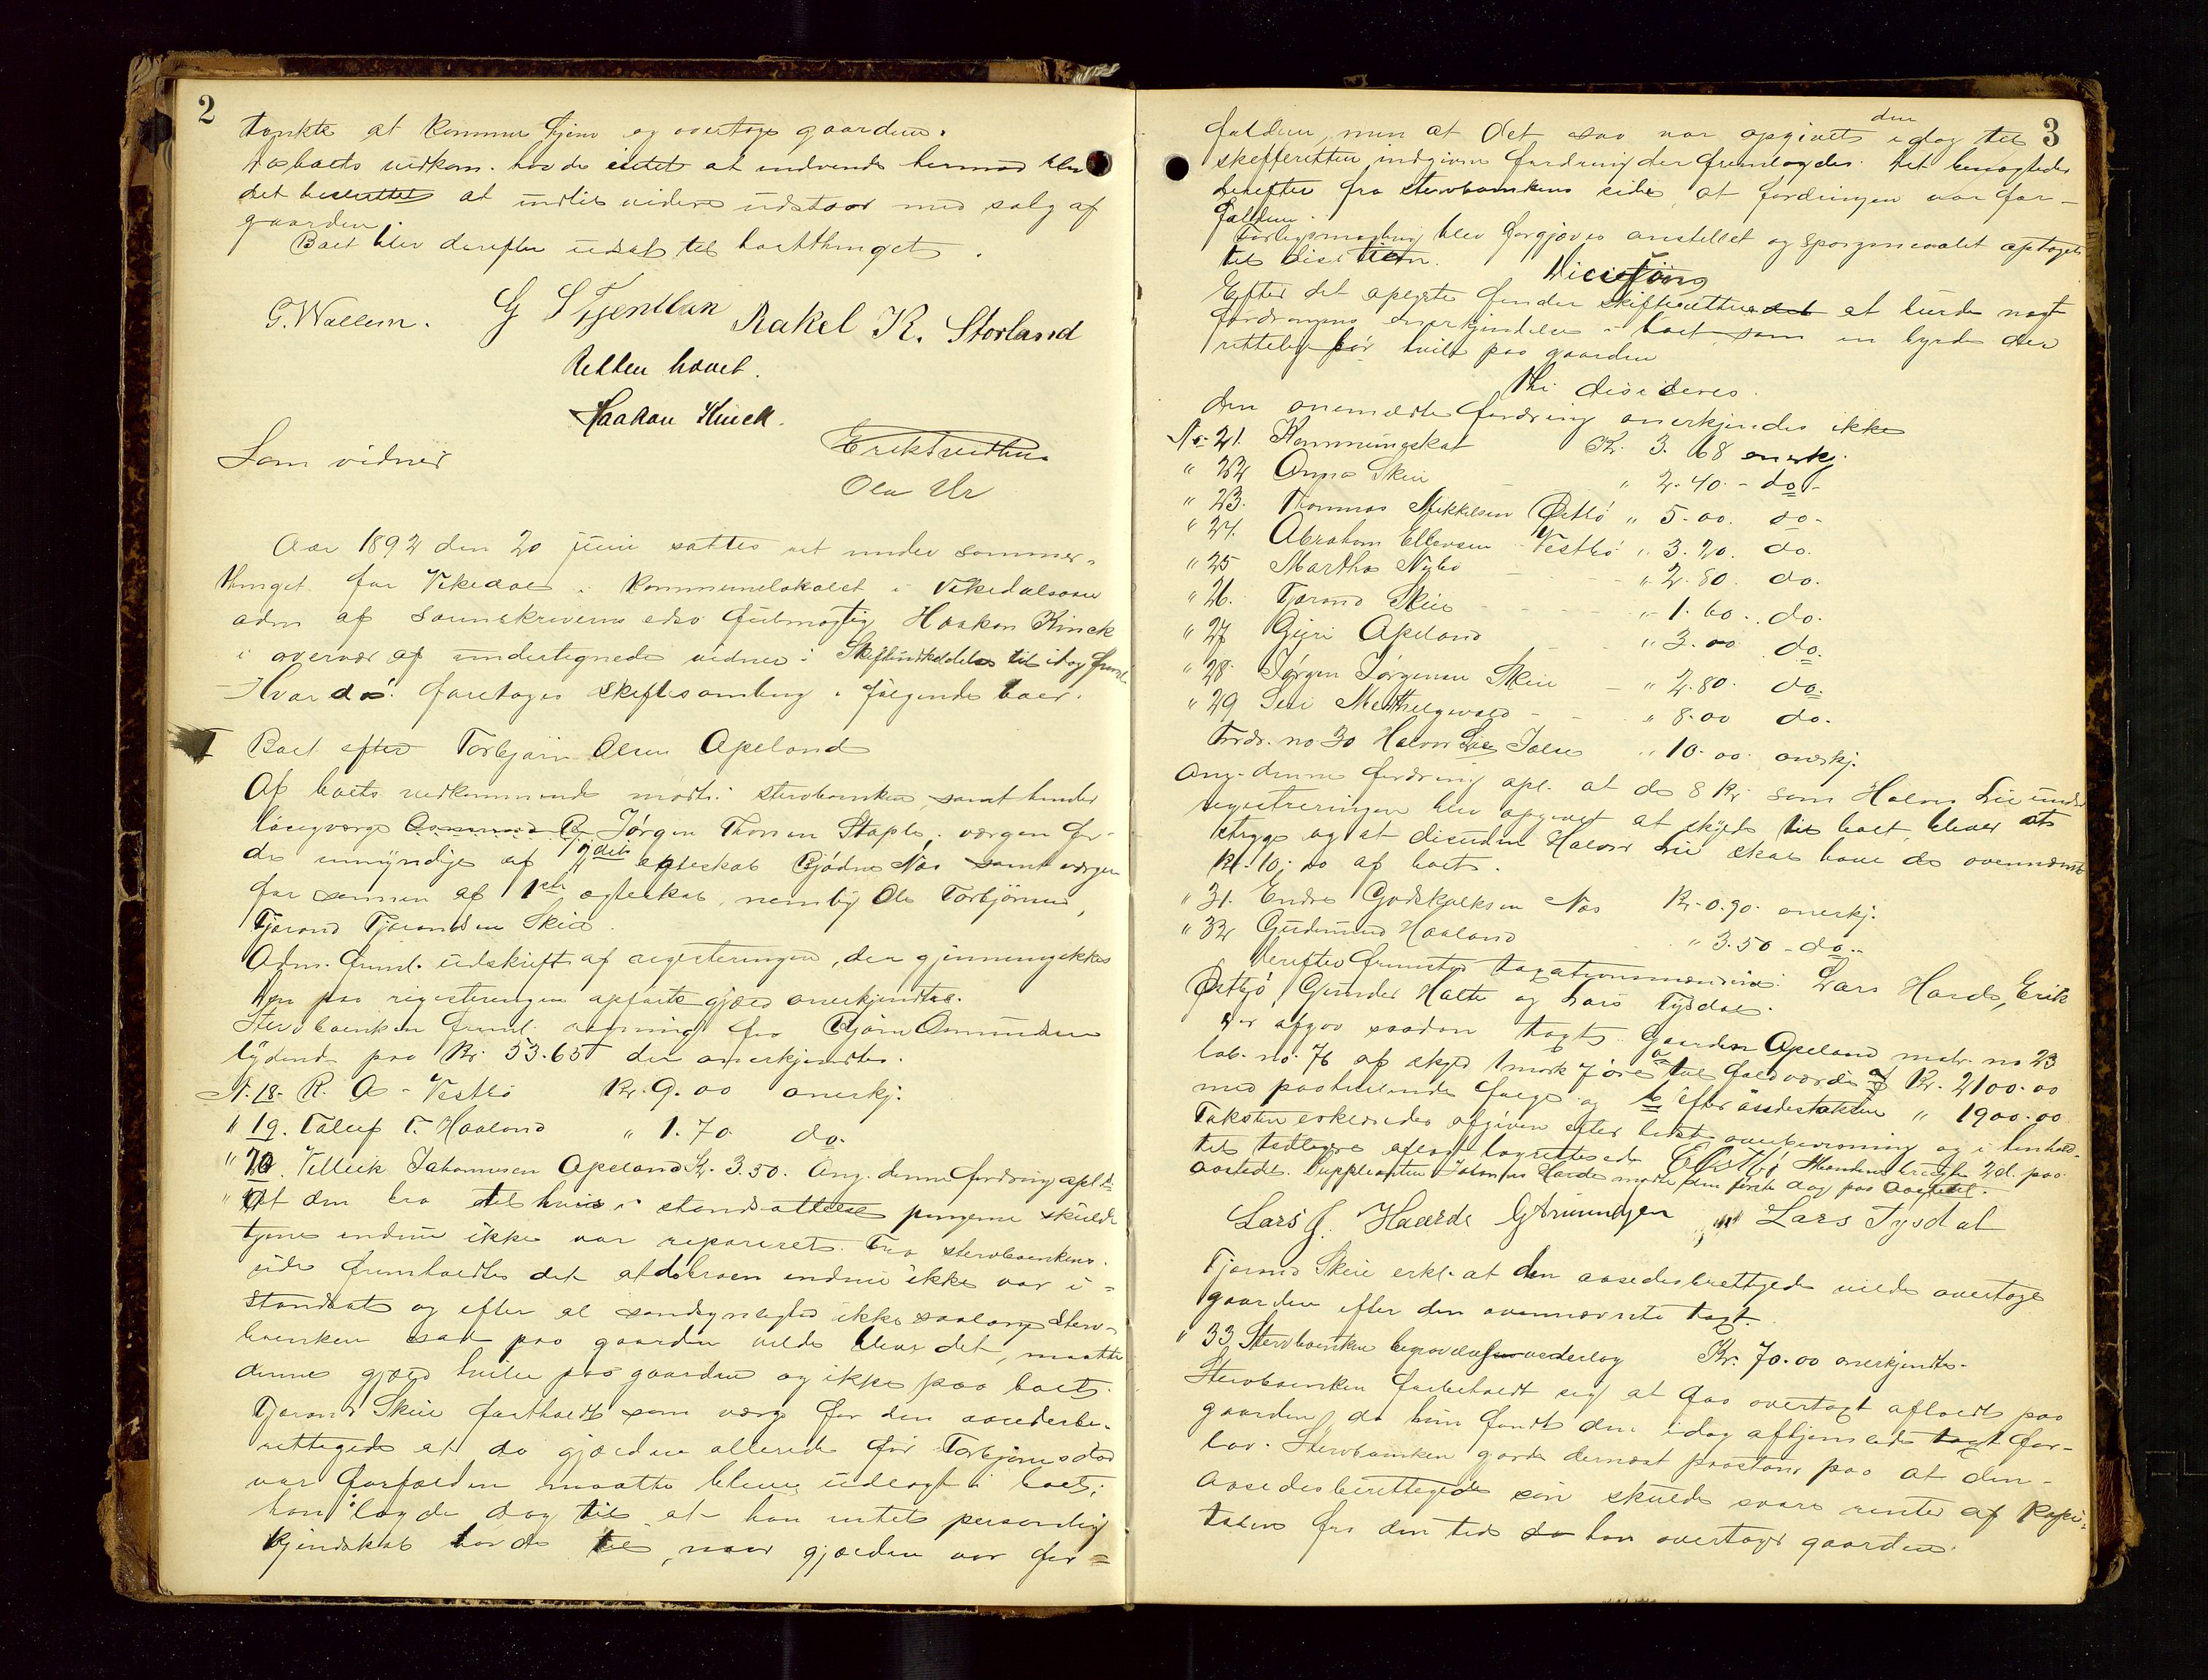 2
tænkte at komme hjem og overtage gaarden.
Da boets vedkom. havde intet at indvende hermed blev
det besluttet at indtil videre udstaar med salg af
gaarden.
Boet blev derefter udsat til høstthinget.
G. Wallem. G S Tjentlan Rakel K. Storland
Retten hævet.
Haakon Kinck.
Som vidner
Erik Tveithun
Ola Ur
Aar 1892 den 20 juni sattes ret under sommer-
thinget for Vikedal i kommunelokalet i Vikedalsøren
adm af sorenskriverens edsv fuldmægtig Haakon Kinck
i overvær af undertegnede vidner: Skifteindkaldelse til idag freml.
Hvorda: foretoges skiftesamling i følgende boer.
I Boet efter Torbjørn Olsen Apeland
Af boets vedkommende mødte: stervboenken samt hendes
laugværge Jørgen Thorsen Staple, værgen for
de umyndige af 2det ægteskab Bjødne Næs samt værgen
for sønnen af 1ste ægteskab, nemlig Ole Torbjørnsen,
Tjerand Tjerandsen Skeie.
Adm. freml. udskrift af registeringen, der gjennemgikkes
Den paa registeringen opførte gjæld anerkjendtes.
Stervboenken freml. regning fra Bjørn Omundsen
lydende paa Kr. 53.65 der anerkjendtes.
N. 18. R. A - Vestbø Kr. 9.00 anerkj.
" 19. Tollef T. Haaland " 1.70 do.
" 20. Velleik Johannesen Apeland Kr. 3.50. Ang. denne fordring opl.
at den bro til hvis istandsættelse pengene skulde
tjene endnu ikke var repareret. Fra stervboenkens
side fremholdtes det at da broen endnu ikke var i-
standsat og efter al sandsynlighed ikke saalænge sterv-
boenken sad paa gaarden vilde blive det, maatte
denne gjæld hvile paa gaarden og ikke paa boet.
Tjerand Skeie fastholdt som værge for den aasædesbe-
rettigede at da gjælden allerede før Torbjørns død
var forfalden maatte blive udlagt i boet;
han lagde dog til at han intet personlig
kjendskab havde til, naar gjælden var for=
3
falden, men at det saa var opgivet i den idag til
skifteretten indgivne fordring der fremlagdes. Det benægtedes
derefter fra stervboenkens side, at fordringen var for-
falden.
Forligsmægling blev forgjæves anstillet og spørgsmaalet optaget
til decision.
Decision
Efter det oplyste finder skifteretten at burde nægte
fordringens anerkjendelse i boet som en byrde der
rettelig bør hvile paa gaarden
Thi decideres.
Den anmeldte fordring anerkjendes ikke
No 21. Kommuneskat Kr. 3.68 anerkj.
" 22 Anna Skeie " 2.40 - do -
" 23. Thommas Mikkelsen Østbø " 5.00. do -
" 24. Abraham Ellensen Vestbø " 3.20. do.
" 25 Martha Nybø " 2.80. do.
" 26. Tjerand Skeie " 1.60. do.
" 27 Guri Apeland " 3.00 do.
" 28 Jørgen Jørgensen Skeie " 2.80. do.
" 29 Siri " 8.00 do.
Fordr. no 30 Halvor Lie Jelse " 10.00. anerkj.
Ang. denne fordring opl. at de 8 Kr som Halvor Lie under
registreringen blev opgivet at skylde til boet, blever at
stryge og at desuden Halvor Lie skal have de ovennævnte
Kr. 10.00 af boet.
" 31. Endre Godskalksen Næs Kr. 0.90 anerkj.
" 32 Gudmund Haaland " 3.50 - do -
Derefter fremstod taxationsmændene: Lars Harde, Erik
Østbø, Gunder Hatte og Lars Tysdal.
der afgav saadan taxt: Gaarden Apeland matr. no 23
løb. no. 76 af skyld 1 mark 7 øre a til fuld værdi af Kr. 2100.00
med paahvilende følge og b efter aasædestaksten " 1900.00
Taksten erklæredes afgiven efter bedste overbevisning og i henhold
til tidligere aflagt lagrettesed. E Østbø Mændene brugte 2 d. paa
aastedet. Suppleanten Johannes Harde mødte den første dag paa aastedet.
Lars J. Haarde G Amundsen Lars Tysdal
Tjerand Skeie erkl. at den aasædesberettigede vilde overtage
gaarden efter den ovennævnte taxt.
" 33 Stervboenken begravelsesvederlag Kr. 70.00 anerkjendtes.
Stervboenken forbeholdt sig at faa overtaxt afholdt paa
gaarden, da hun fandt den idag afhjemlede taxt for-
lav. Stervboenken gjorde dernæst paastand paa at den
aasædesberettigede søn skulde svare renter af kapi-
talen fra den tid han overtager gaarden.